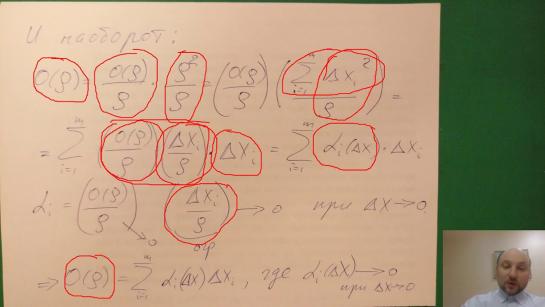 И наоборот:
o(ρ) = o(ρ)/ρ · ρ²/ρ = (o(ρ)/ρ) (∑_{i=1}^{m} Δx_i²/ρ) =
= ∑_{i=1}^{m} (o(ρ)/ρ) (Δx_i/ρ) · Δx_i = ∑_{i=1}^{m} α_i(Δx) · Δx_i
α_i = (o(ρ)/ρ) (Δx_i/ρ) → 0 при Δx → 0.
→ 0 огр
⇒ o(ρ) = ∑_{i=1}^{m} α_i(Δx) Δx_i, где α_i(Δx) → 0
при Δx → 0